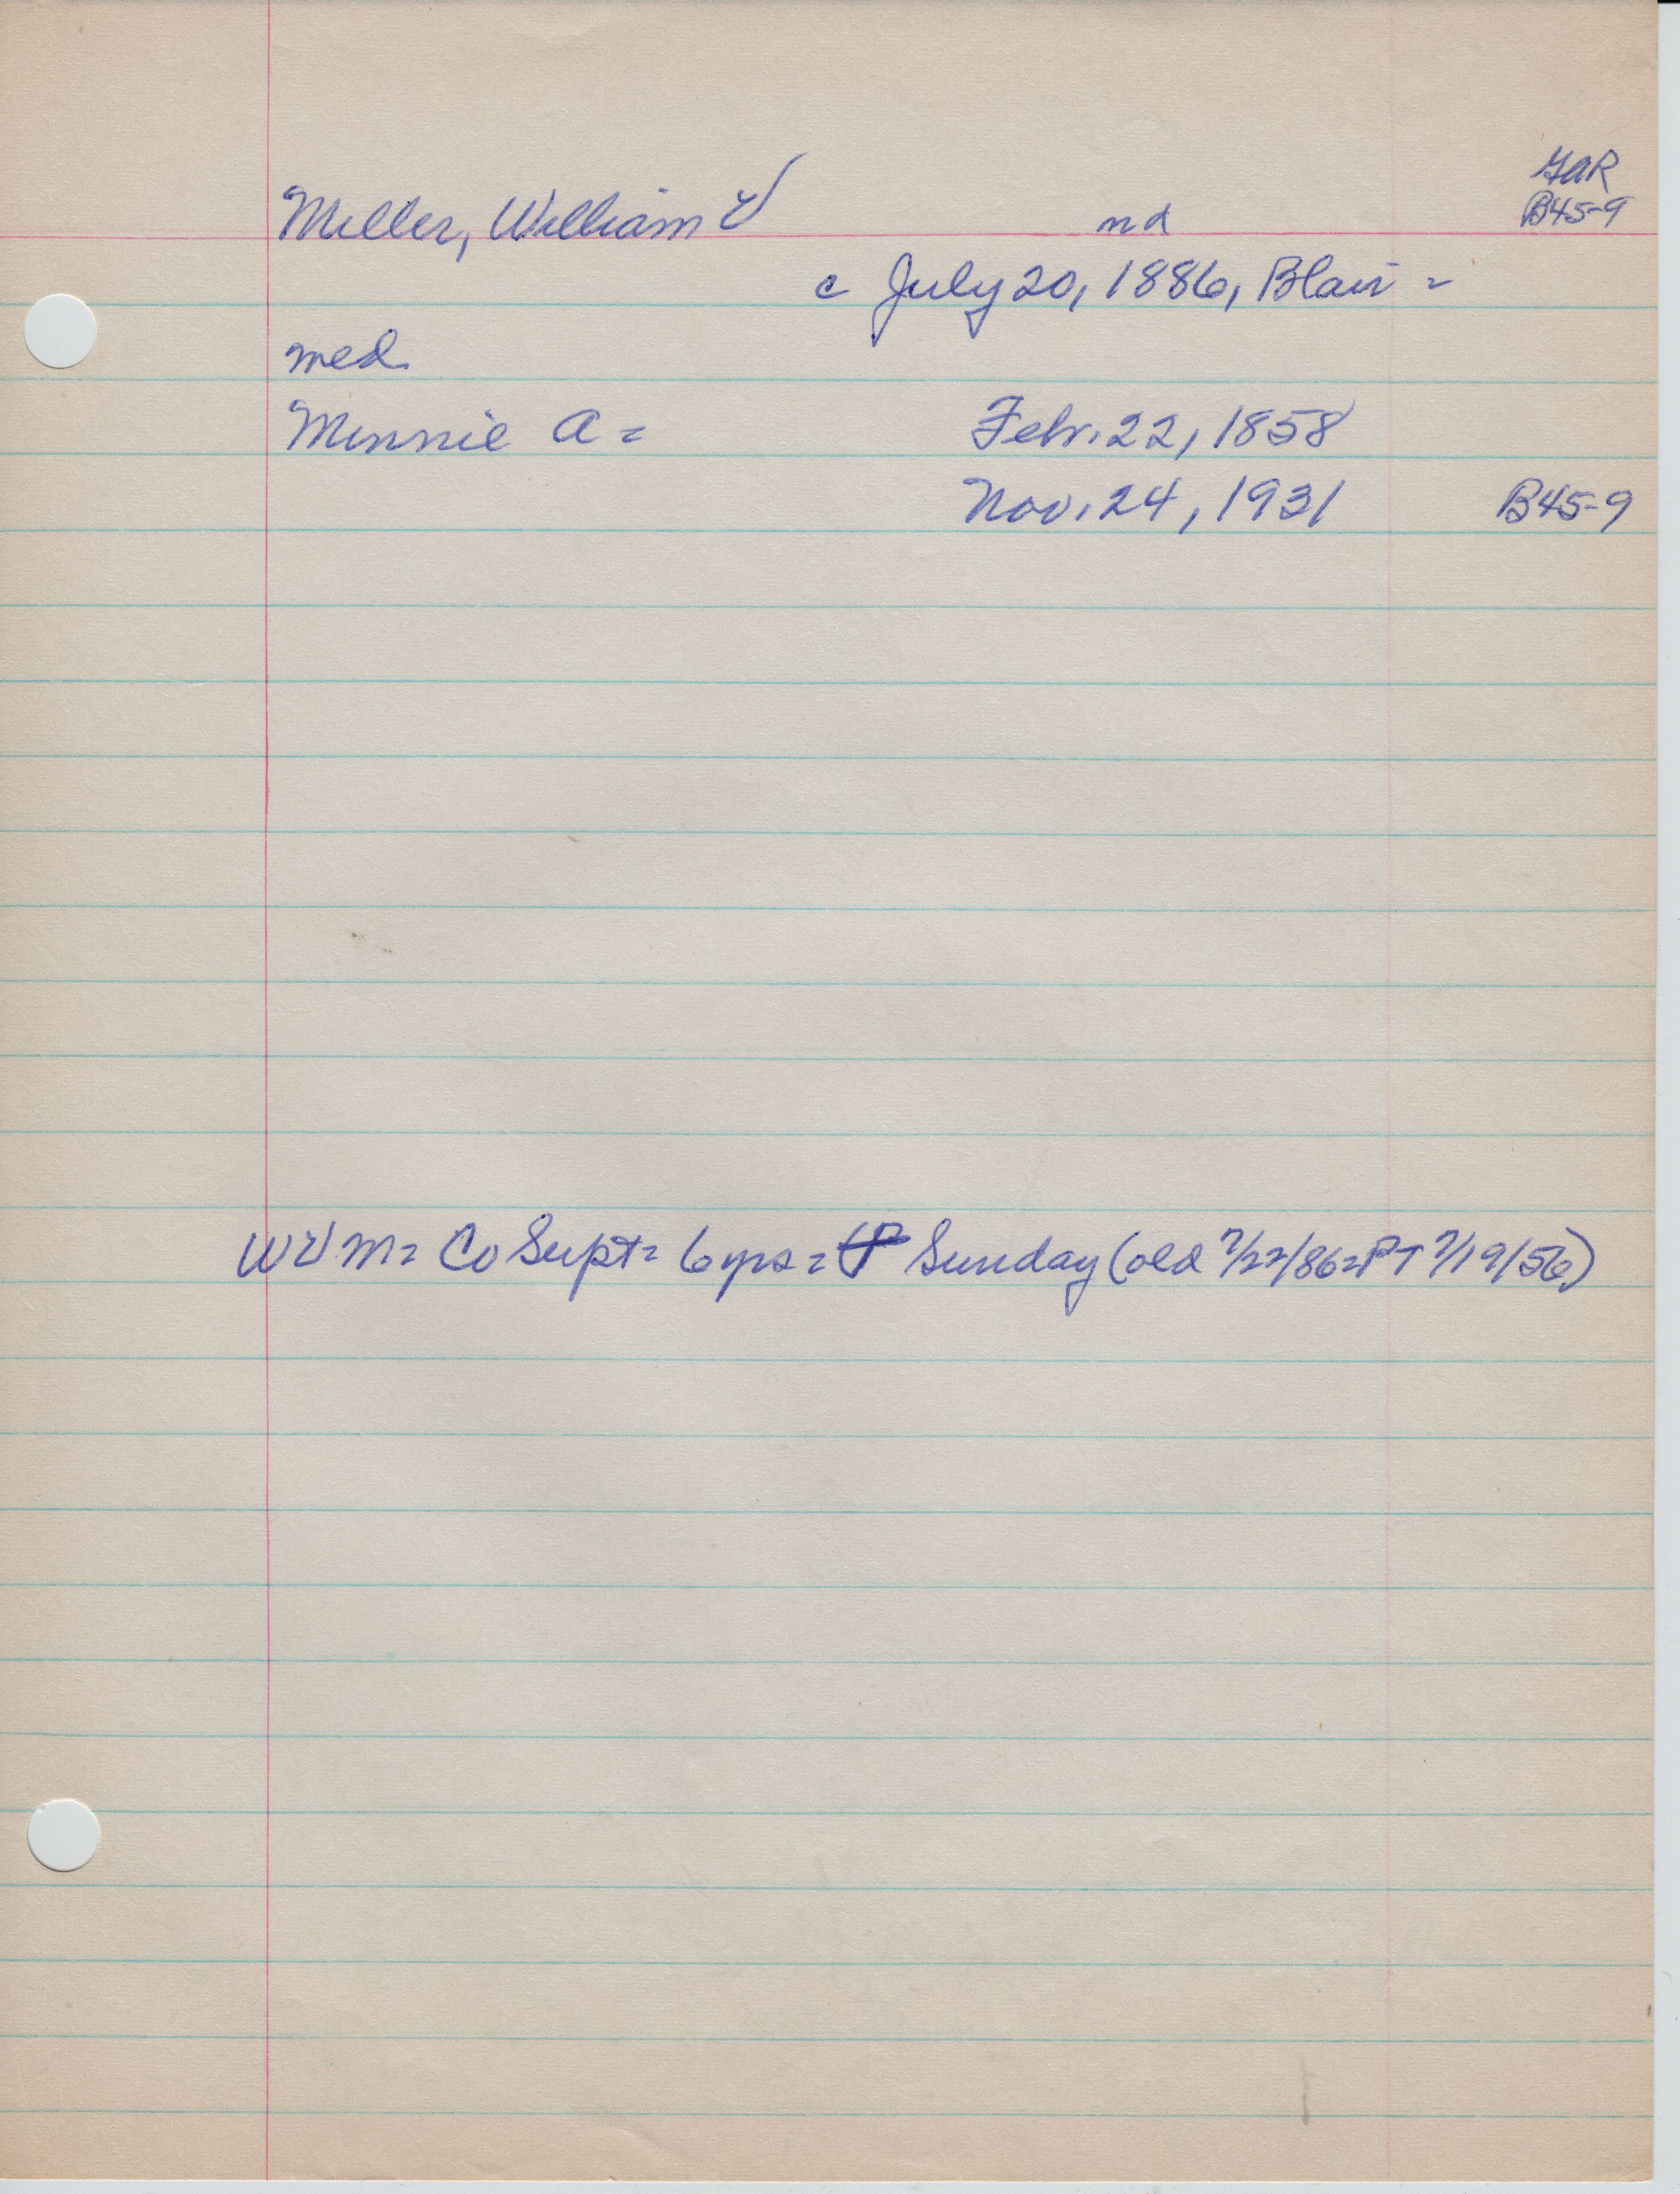 GAR
Miller, William V nd B45-9
c July 20, 1886, Blair =
med.
Minnie A = Febr. 22, 1858
Nov. 24, 1931 B45-9
WVM = Co Supt = 6 yrs = Sunday (old 7/22/86 = PT 7/19/56)